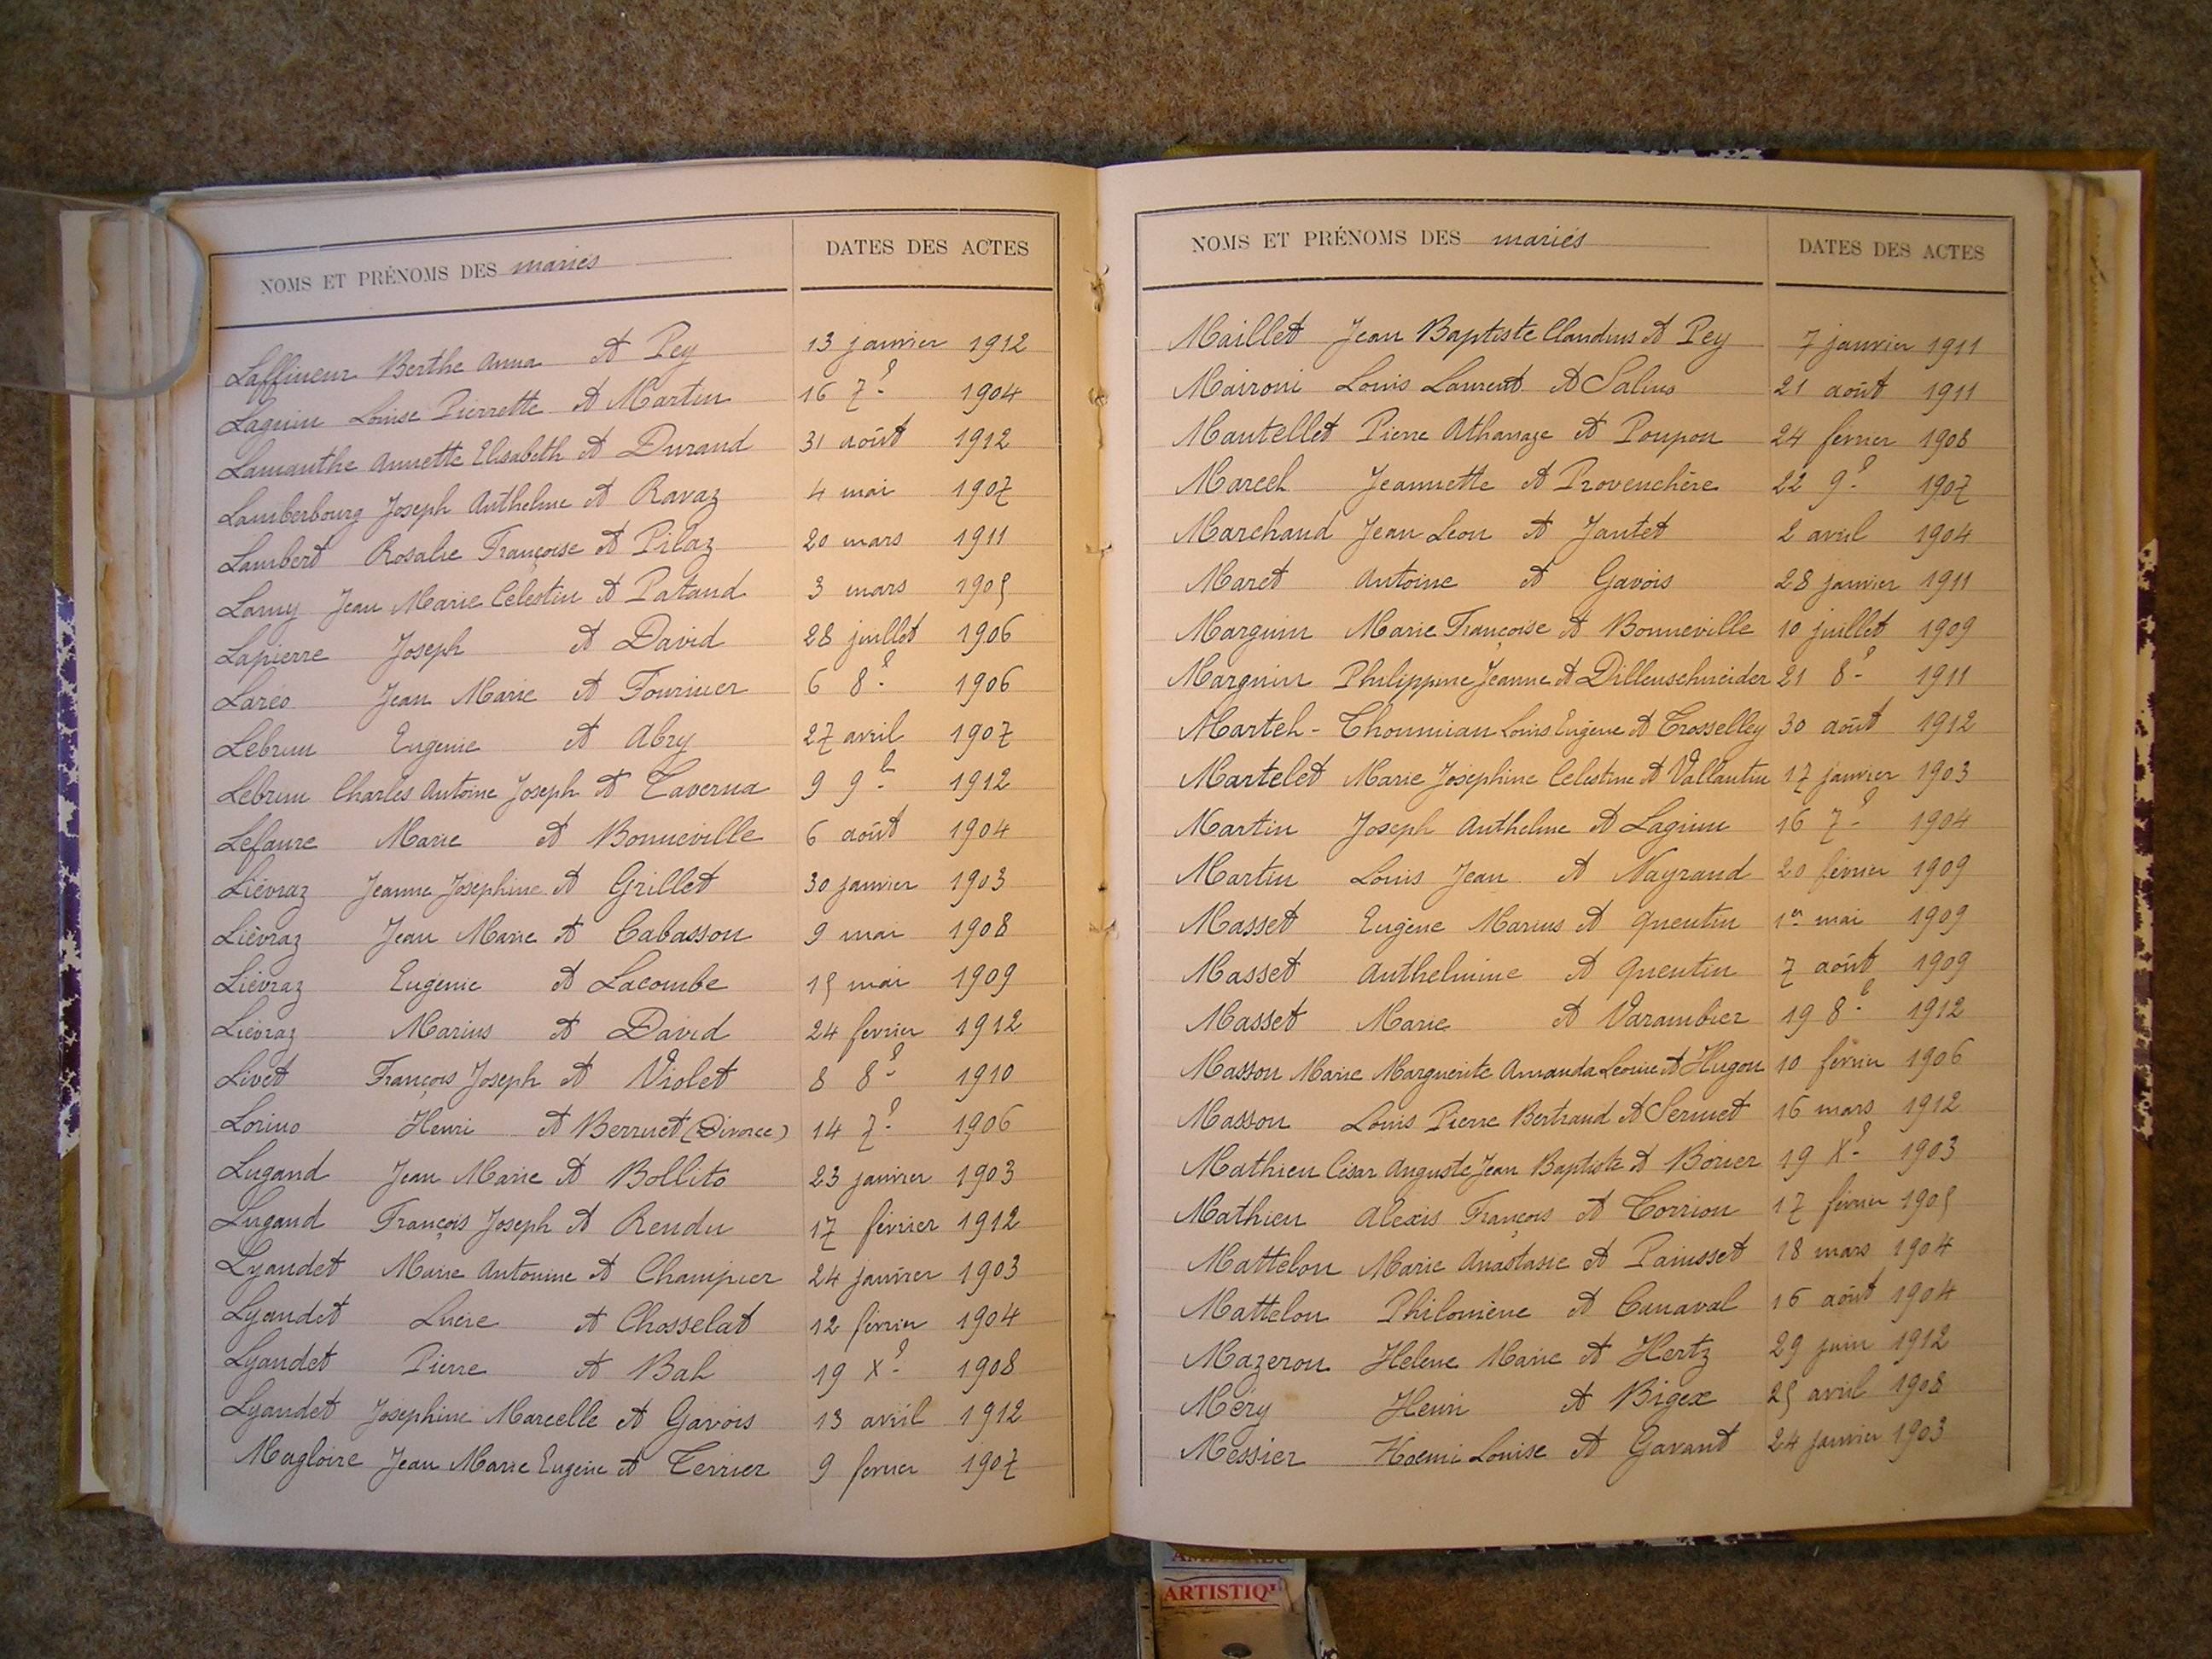 NOMS ET PRÉNOMS DES mariés DATES DES ACTES
Laffineur Berthe Anna et Pey 13 janvier 1912
Laguin Louise Pierrette et Martin 16 7e 1904
Lamanthe Annette Elisabeth et Durand 31 août 1912
Lamberbourg Joseph Anthelme et Ravaz 4 mai 1907
Lambert Rosalie Françoise et Pilaz 20 mars 1911
Lamy Jean Marie Celestin et Pataud 3 mars 1905
Lapierre Joseph et David 28 juillet 1906
Laréo Jean Marie et Fournier 6 8e 1906
Lebrun Eugenie et Abry 27 avril 1907
Lebrun Charles Antoine Joseph et Taverna 9 9e 1912
Lefaure Marie et Bonneville 6 août 1904
Liévraz Jeanne Josephine et Grillet 30 janvier 1903
Liévraz Jean Marie et Cabasson 9 mai 1908
Liévraz Eugénie et Lacombe 15 mai 1909
Liévraz Marius et David 24 fevrier 1912
Livet François Joseph et Violet 8 8e 1910
Lorino Henri et Berruet (Divorce) 14 7e 1906
Lugand Jean Marie et Bollito 23 janvier 1903
Lugand François Joseph et Rendu 17 février 1912
Lyandet Marie Antonine et Champier 24 janvier 1903
Lyandet Lucie et Chosselat 12 février 1904
Lyandet Pierre et Bal 19 Xe 1908
Lyandet Josephine Marcelle et Gavois 13 avril 1912
Magloire Jean Marie Eugène et Terrier 9 fevrier 1907
NOMS ET PRÉNOMS DES mariés DATES DES ACTES
Maillet Jean Baptiste Claudius et Pey 7 janvier 1911
Maironi Louis Laurent et Salino 21 août 1911
Mantellet Pierre Athanaze et Poupon 24 février 1908
Marcel Jeannette et Provenchère 22 9e 1907
Marchand Jean Leon et Jantet 2 avril 1904
Maret Antoine et Gavois 28 janvier 1911
Marguin Marie Françoise et Bonneville 10 juillet 1909
Marguin Philippine Jeanne et Dillenschneider 21 8e 1911
Martel-Thoumian Louis Eugène et Trosselley 30 août 1912
Martelet Marie Joséphine Celestine et Vallantin 17 janvier 1903
Martin Joseph Anthelme et Laguin 16 7e 1904
Martin Louis Jean et Nayrand 20 février 1909
Masset Eugène Marius et Quentin 1er mai 1909
Masset Anthelmine et Quentin 7 août 1909
Masset Marie et Varambier 19 8e 1912
Masson Marie Marguerite Amanda Leonie et Hugon 10 février 1906
Masson Louis Pierre Bertrand et Sermet 16 mars 1912
Mathieu César Auguste Jean Baptiste et Borier 19 Xe 1903
Mathieu Alexis François et Corrion 17 février 1905
Mattelon Marie Anastasie et Panisset 18 mars 1904
Mattelon Philomène et Canaval 16 août 1904
Mazeron Helene Marie et Hertz 29 juin 1912
Méry Henri et Bigex 25 avril 1908
Messier Noemi Louise et Gavant 24 janvier 1903
ARTISTIQ